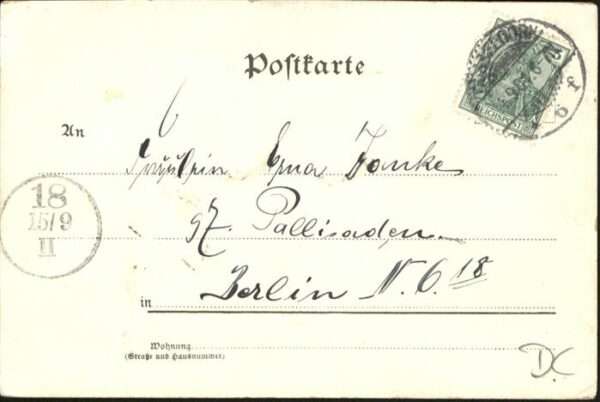 Postkarte
An
Fräulein Erna Janke
97. Pallisaden.
Berlin N. O. 18
in
Wohnung
(Straße und Hausnummer)
18
15/9
II
REICHSPOST
D.C